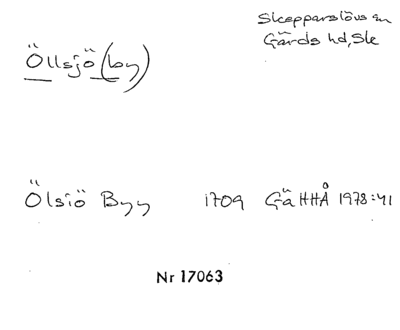 Skepparslövs sn
Gärds hd, Sk
Öllsjö (by)
Ölsiö Byy 1709 GäHHÅ 1978:41
Nr 17063